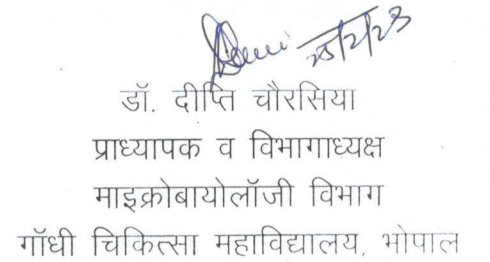 25/2/23
डॉ. दीप्ति चौरसिया
प्राध्यापक व विभागाध्यक्ष
माइक्रोबायोलॉजी विभाग
गॉधी चिकित्सा महाविद्यालय, भोपाल